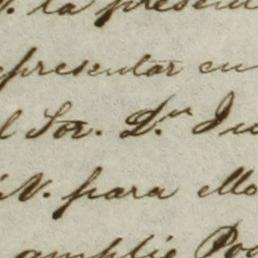 V. la present
epresentar en
l Sor. D.n Ju
V. para ello
amplio Pod